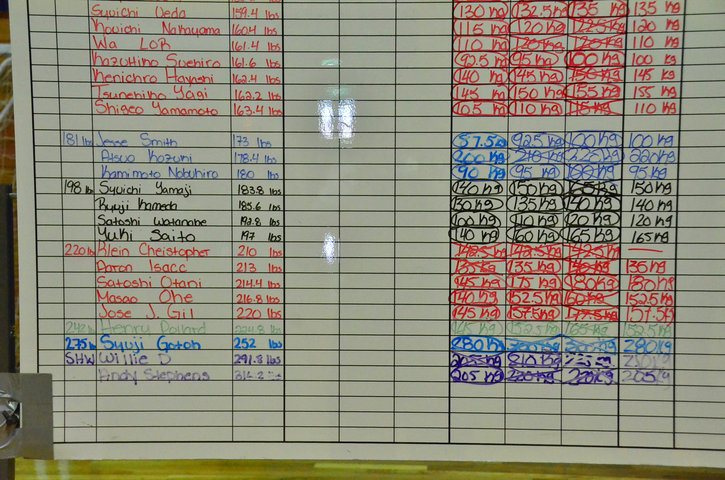 Syuichi Ueda 159.4 lbs 130 kg 132.5 kg 135 kg 135 kg
Kouichi Nakayama 160.4 lbs 115 kg 120 kg 122.5 kg 120 kg
Wa LOR 161.4 lbs 110 kg 120 kg 120 kg 110 kg
Kazuhiko Suehiro 161.6 lbs 92.5 kg 95 kg 100 kg 100 kg
Kenichro Hayashi 162.4 lbs 140 kg 145 kg 150 kg 145 kg
Tsunehiko Yagi 162.2 lbs 145 kg 150 kg 155 kg 155 kg
Shigeo Yamamoto 163.4 lbs 105 kg 110 kg 115 kg 110 kg
181 lb Jesse Smith 173 lbs 57.5 kg 92.5 kg 100 kg 100 kg
Atsuo Kozuni 178.4 lbs 200 kg 210 kg 220 kg 220 kg
Kamimoto Nobuhiro 180 lbs 90 kg 95 kg 100 kg 95 kg
198 lb Syuichi Yamaji 183.8 lbs 140 kg 150 kg 150 kg
Ryuji Kameda 185.6 lbs 130 kg 135 kg 140 kg 140 kg
Satoshi Watanabe 192.8 lbs 100 kg 110 kg 120 kg 120 kg
Yuki Saito 197 lbs 140 kg 160 kg 165 kg 165 kg
220 lb Klein Cheistopher 210 lbs 142.5 kg 142.5 kg 142.5 kg
Aaron Isacc 213 lbs 135 kg 135 kg 135 kg
Satoshi Otani 214.4 lbs 145 kg 175 kg 180 kg 180 kg
Masao Ohe 216.8 lbs 140 kg 152.5 kg 160 kg 152.5 kg
Jose J. Gil 220 lbs 145 kg 157.5 kg 177.5 kg 157.5 kg
242 lb Henry Dollard 224.8 lbs 145 kg 152.5 kg 165 kg 152.5 kg
275 lb Syuji Gotoh 252 lbs 280 kg 300 kg 280 kg
SHW Willie D 291.8 lbs 205 kg 210 kg
Andy Stephens 316.2 205 kg 220 kg 220 kg 205 kg